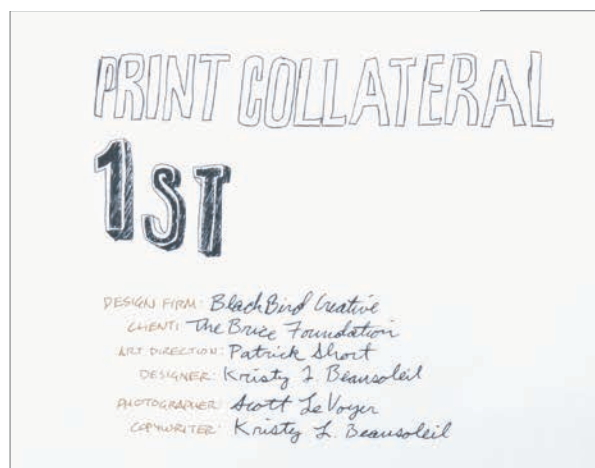 PRINT COLLATERAL
1ST
DESIGN FIRM: BlackBird Creative
CLIENT: The Brice Foundation
ART DIRECTION: Patrick Short
DESIGNER: Kristy L. Beausoleil
PHOTOGRAPHER: Scott LeVoyer
COPYWRITER: Kristy L. Beausoleil